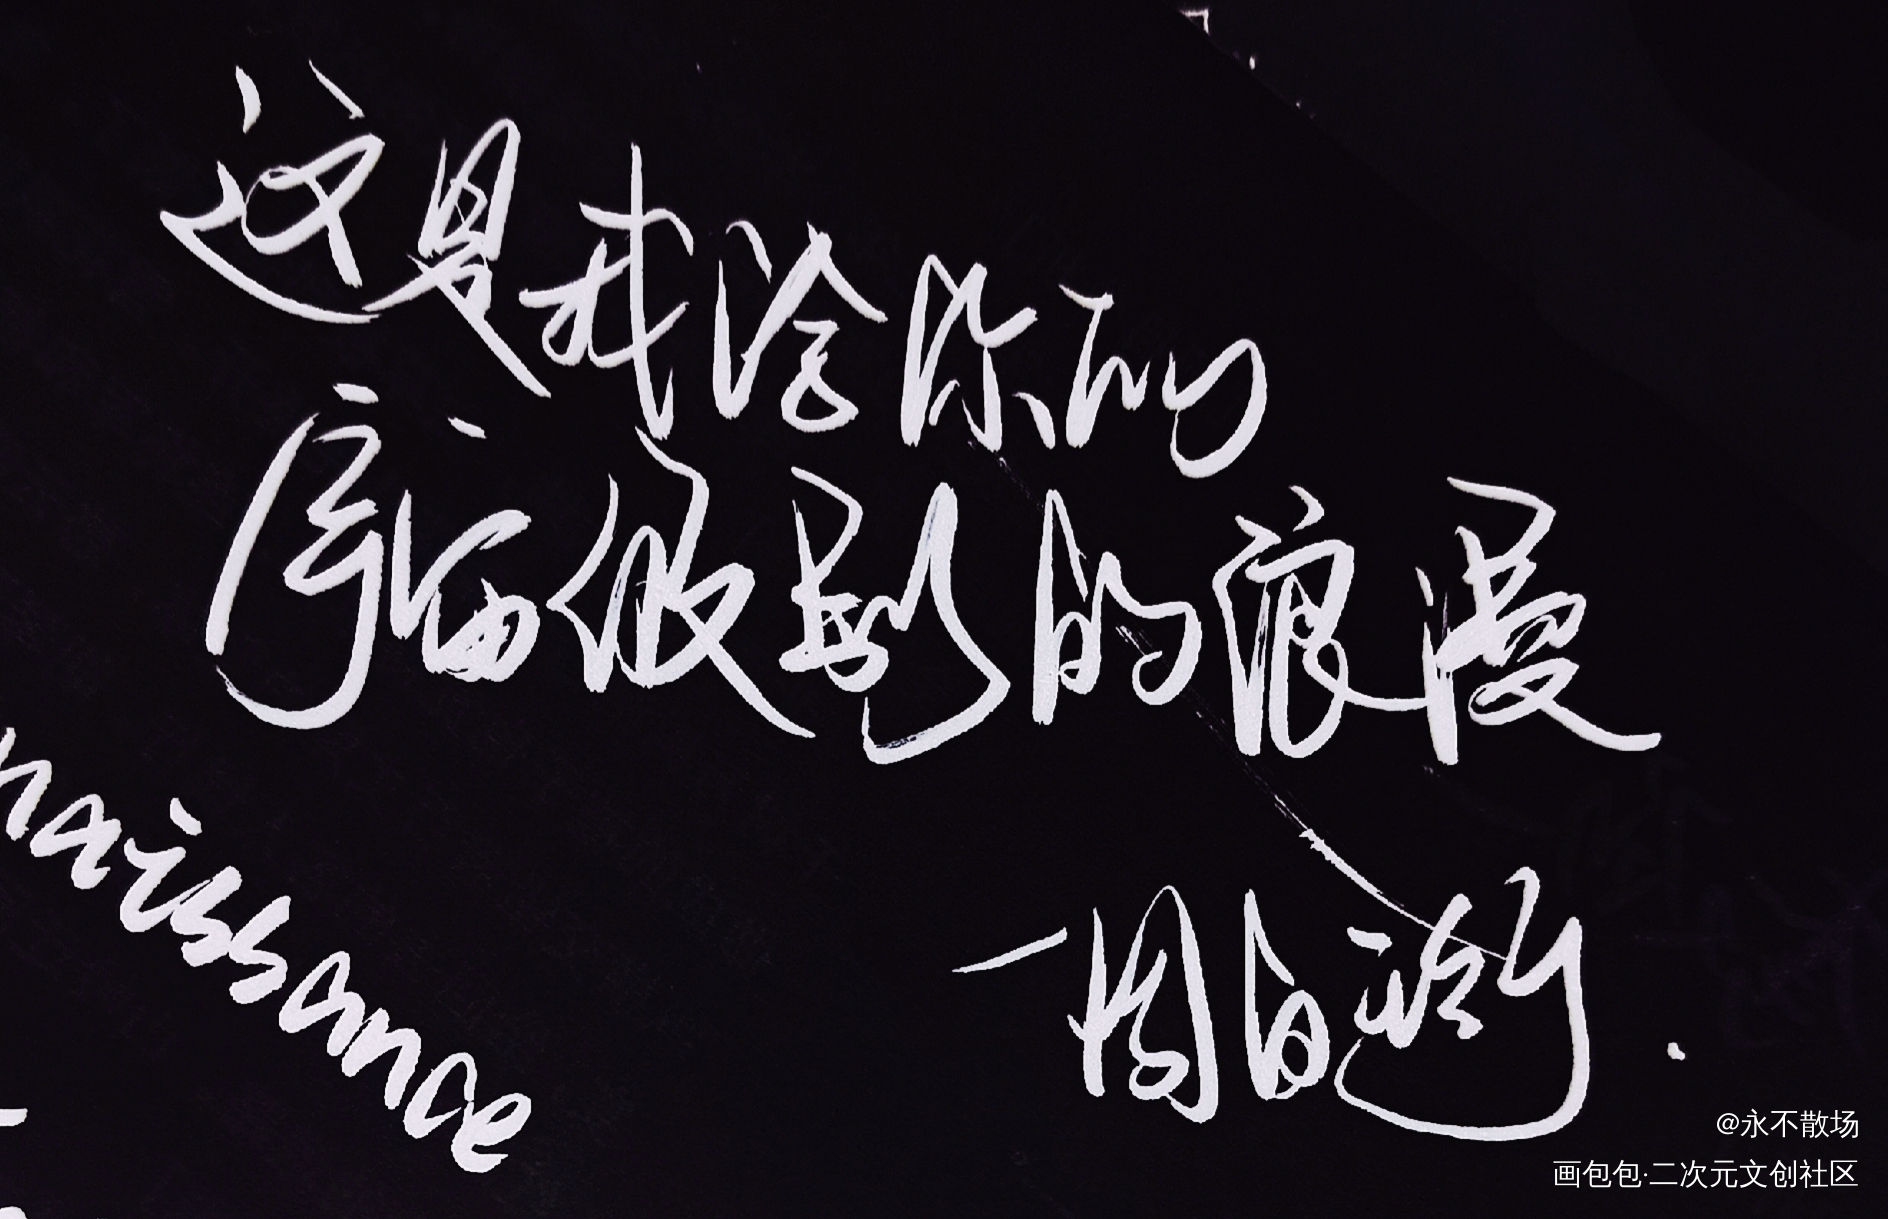 这是我给你的
宇宙级别的浪漫
—周自珩.
naissance
@永不散场
画包包·二次元文创社区